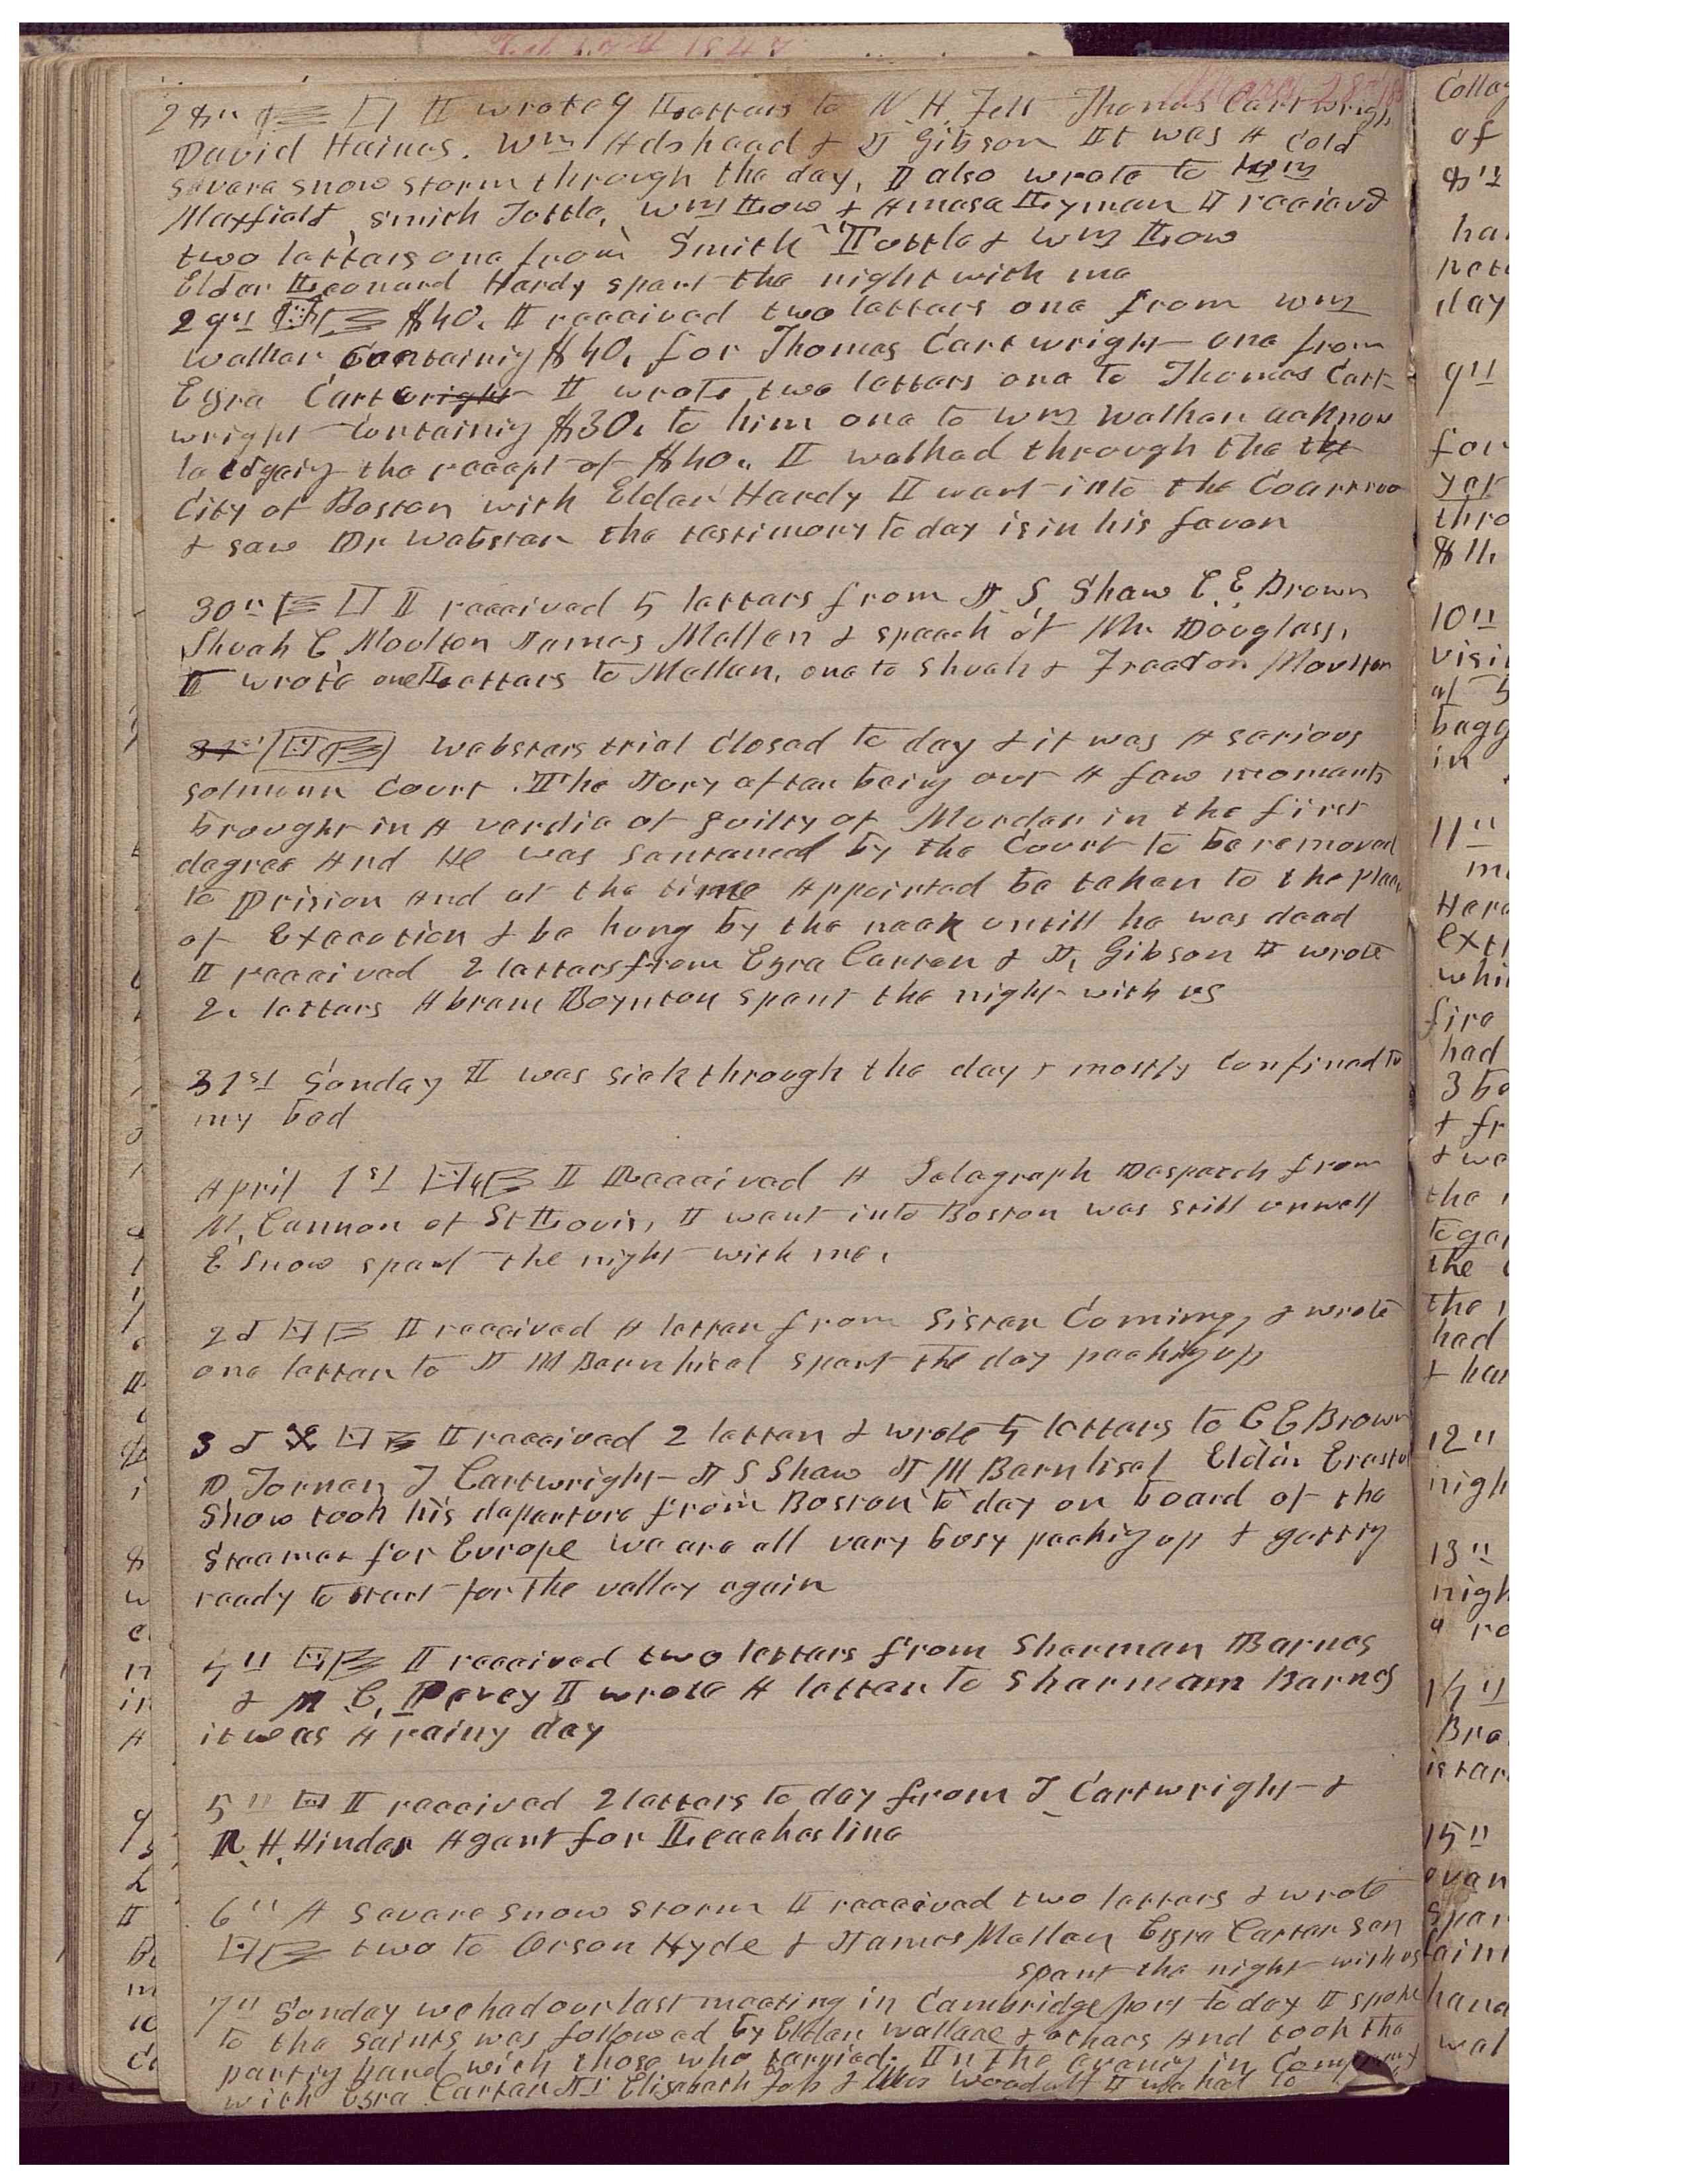 March 28th 18
28th I wrote 9 Letters to N. H. Felt Thomas Cartwrigh
David Haines. Wm Adshead & J Gibson It was A Cold
severe snow storm through the day, I also wrote to Wm
Maxfield, Smith Tottle, Wm Low & Amasa Lyman I recievd
two letters one from Smith Tuttle & Wm Low
Elder Leonard Hardy spent the night with me
29th $40. I receeived two letters one from Wm
Walker Containig $40. for Thomas Cartwright one from
Ezra Carter I wrote two letters one to Thomas Cart-
wright Containig $30. to him one to Wm Walker acknow
ledgeig the recept of $40. I walked through the the
City of Boston with Elder Hardy I went into the Coartroo
& saw Dr Webster the testimony to day is in his favor
30th I receeived 5 letters from J S Shaw E. E. Brown
Shuah C Moulton James Mellen & speech of Mr. Douglass,
I wrote one Letters to Mellen, one to Shuah & Freedon Moulton
31st Websters trial Closed to day & it was A serious
solmnn Court. The Jury after being out A few moments
brought in A verdic of guilty of Murder in the first
degree And He was sentenced by the Court to be removed
to Prision And at the time Appointed be taken to the place
of Execution & be hung by the neck untill he was dead
I receeived 2 letters from Ezra Carter & J, Gibson I wrote
2. letters Abram Boynton spent the night with us
31st Sunday I was sick through the day & mostly Confined to
my bed
April 1st I Receeived A Telegraph Despatch from
M, Cannon of St Louis, I went into Boston was still unwell
E Snow spent the night with me.
2d I receeived A letter from Sister Coming, & wrote
one letter to J M Barnhisel spent the day packig up
3d I receeived 2 letter & wrote 5 letters to C E Brown
D Turner T Cartwright J S Shaw J M Barnhisel Elder Erastus
Snow took his departure from Boston to day on board of the
Steamer for Europe We are all very busy packig up & gettig
ready to start for the valley again
4th I receeived two letters from Sherman Barnes
& M C, Povey I wrote A letter to Sharmam Barnes
it was A rainy day
5th I receeived 2 letters to day from T Cartwright &
R. H. Hinder Agent for Leeches line
6th A Severe snow storm I receeived two letters & wrote
two to Orson Hyde & James Mellen Ezra Carter sen
spent the night with us
7th Sunday we had our last meeting in Cambridgeport to day I spoke
to the Saints was followed by Elder Wallace & others And took the
partig hand with those who tarried. In the evenig in Company
with Ezra Carter Jr Elizabeth & Woodruff I walked to